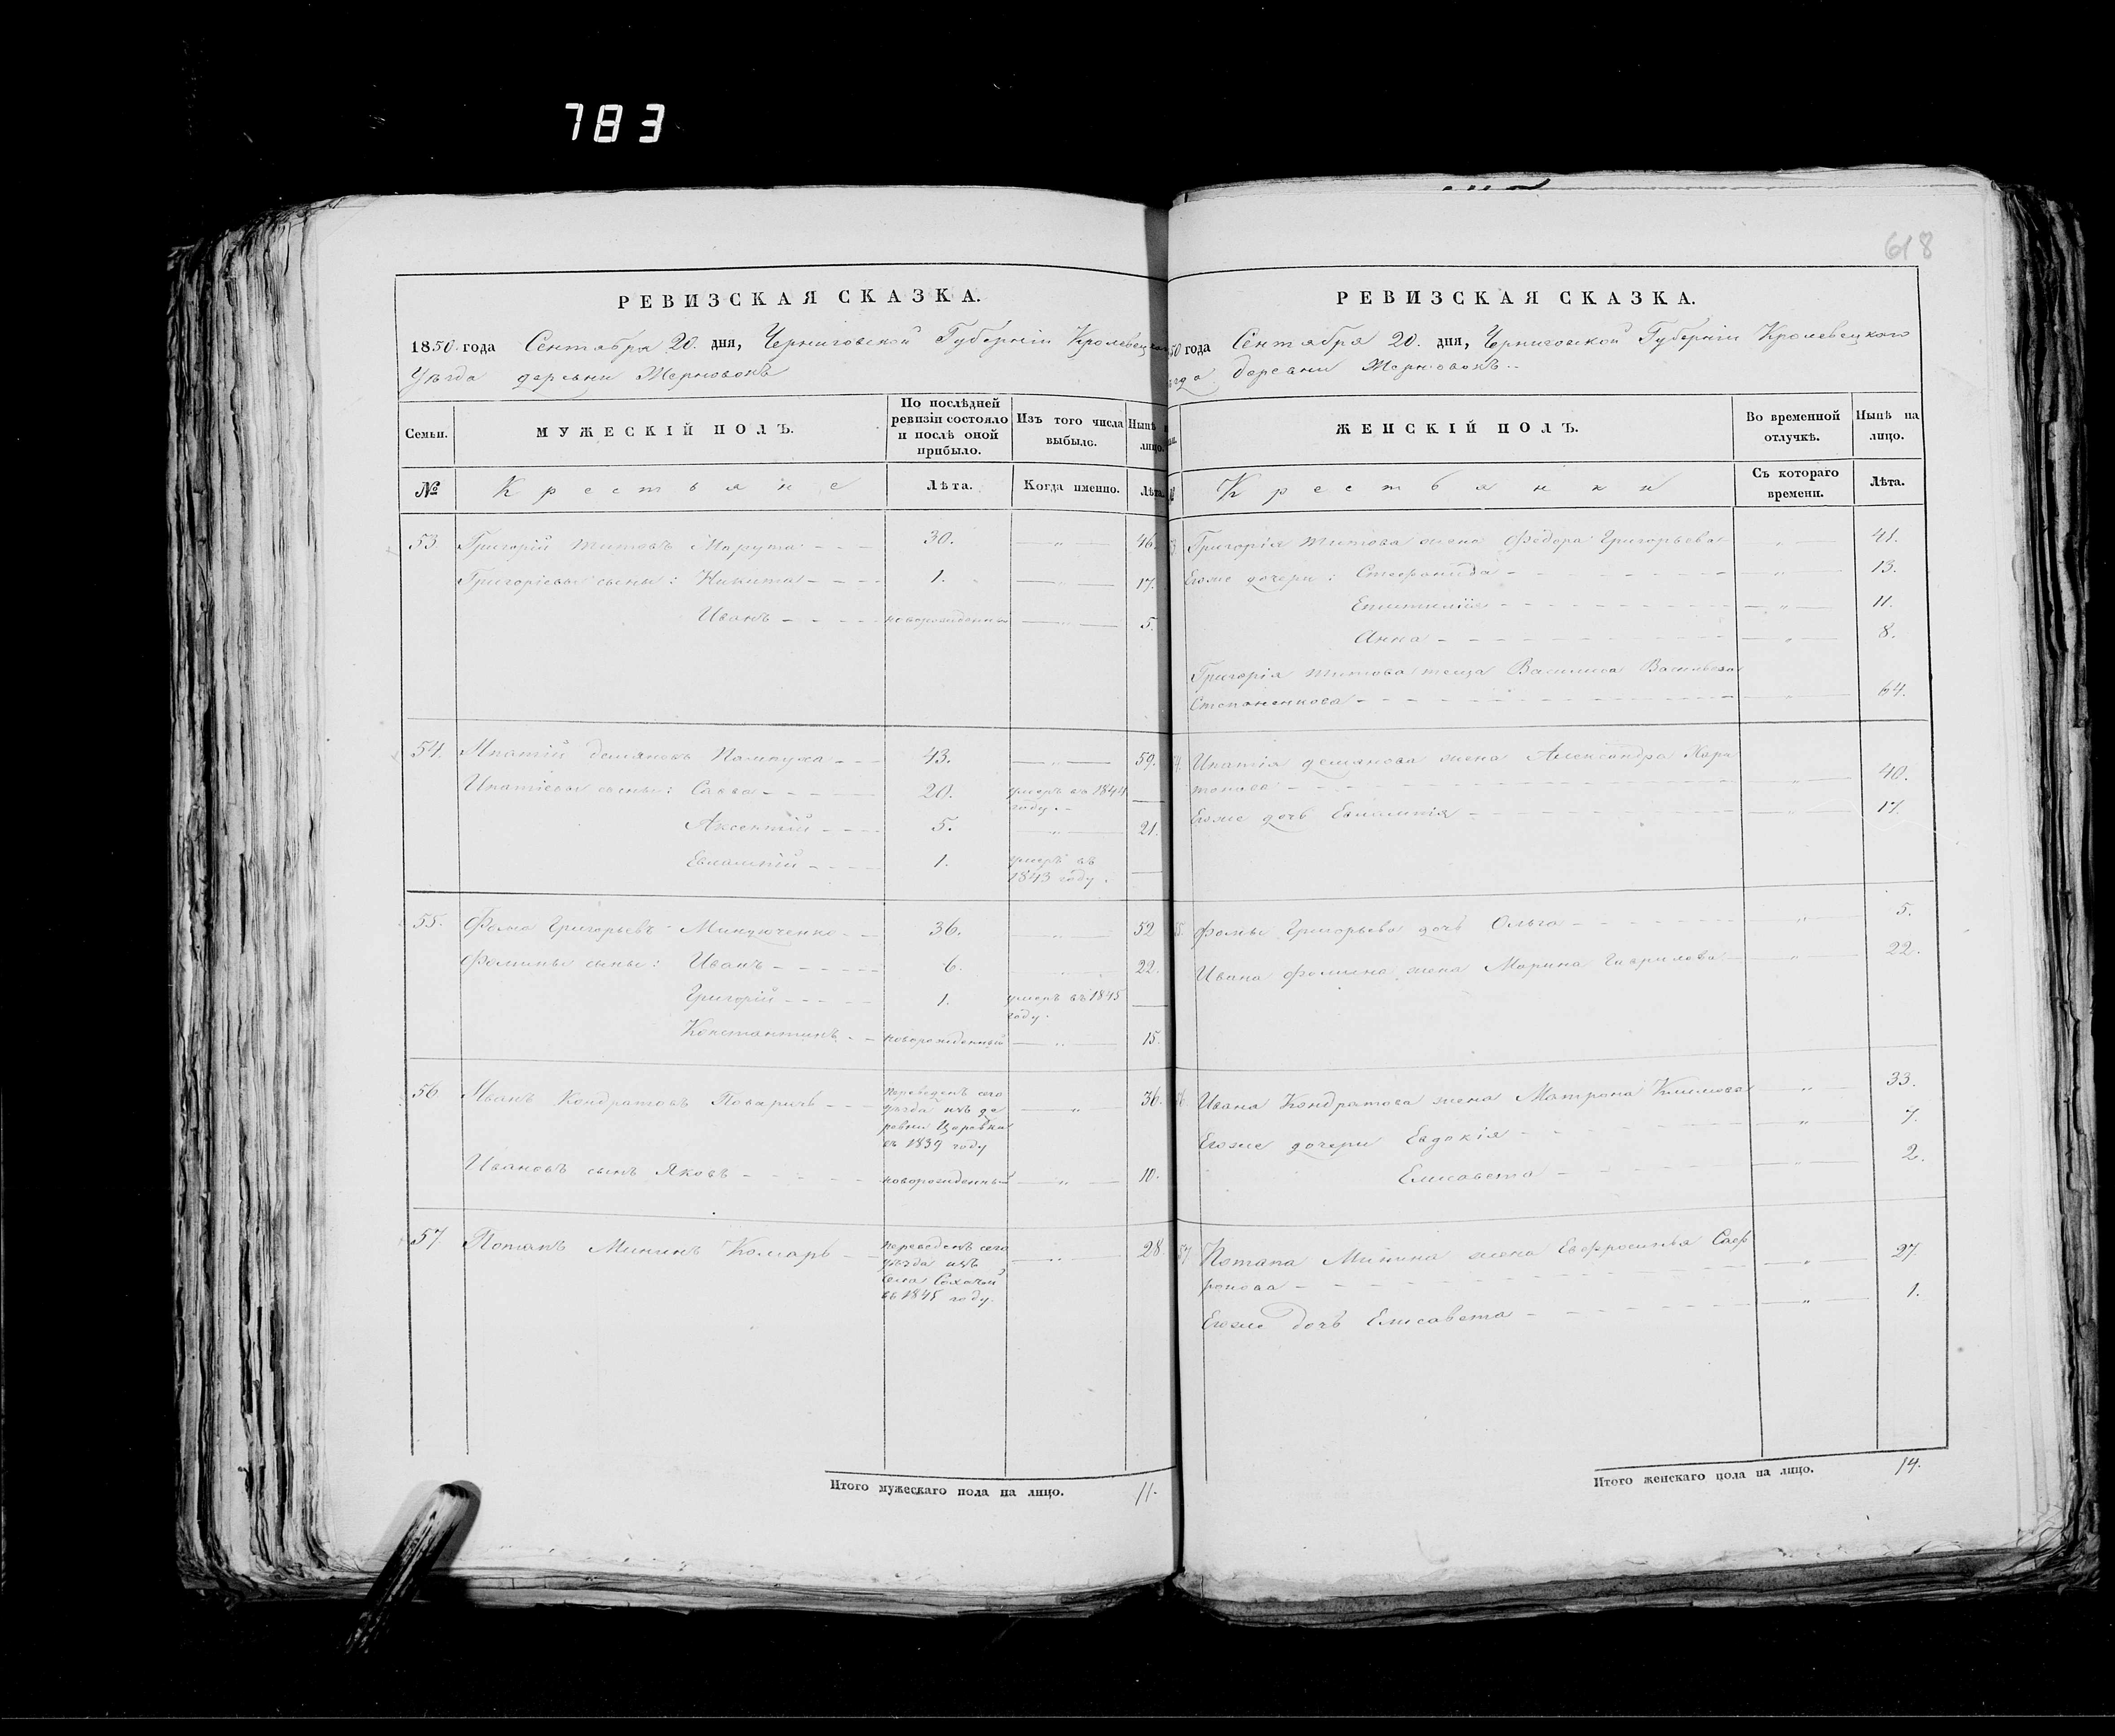 783
618
РЕВИЗСКАЯ СКАЗКА.
1850. года Сентября 20. дня, Черниговской Губерніи Кролевец
Уѣзда деревни Жерновокъ
Семьи.
МУЖЕСКІЙ ПОЛЪ.
По послѣдней ревизіи состояло и послѣ оной прибыло.
Изъ того числа выбыло.
Нынѣ лицо.
№
Крестьяне
Лѣта.
Когда именно.
Лѣта.
53 Григорій Титовъ 30. 46.
Григоріевы сыны: Никита 1. 17.
Иванъ новорожденный 5.
54. Ипатій Демяновъ 43. 59.
Ипатіевы сыны: Савва 20. умеръ въ 1844 году. —
Аксентій 5. 21.
Евлампій 1. умеръ въ 1843 году. —
55. Фома Григорьевъ 36. 52
Фомины сыны: Иванъ 6. 22.
Григорій 1. умеръ въ 1845 году. —
Константинъ новорожденный 15.
56 Иванъ Кондратовъ Поваричъ переведенъ сего уѣзда изъ деревни Царевки въ 1839 году 36.
Ивановъ сынъ Яковъ новорожденный 10.
57 Потапъ Мининъ Комаръ переведенъ сего уѣзда изъ села въ 1845 году. 28.
Итого мужескаго пола на лицо. 11.
РЕВИЗСКАЯ СКАЗКА.
50 года Сентября 20. дня, Черниговской Губерніи Кролевецкого
деревни Жерновокъ
ЖЕНСКІЙ ПОЛЪ.
Во временной отлучкѣ.
Нынѣ на лицо.
Крестьянки
Съ котораго времени.
Лѣта.
Григорія Титова жена Федора Григорьева 41.
Егоже дочери: Стефанида 13.
11.
Анна 8.
Григорія Титова теща Василиса Васильева
Степаненкова 64.
Ипатія Демянова жена Александра Хари
тонова 40.
Егоже дочь Евлампія 17.
55. Фомы Григорьева дочь Ольга 5.
Ивана Фомина жена Марина Гаврилова 22.
Ивана Кондратова жена Матрона Климова 33.
Егоже дочери Евдокія 7.
Елисавета 2.
57 Потапа Минина жена Евфросинія Соф
ронова 27.
Егоже дочь Елисавета 1.
Итого женскаго пола на лицо. 14.